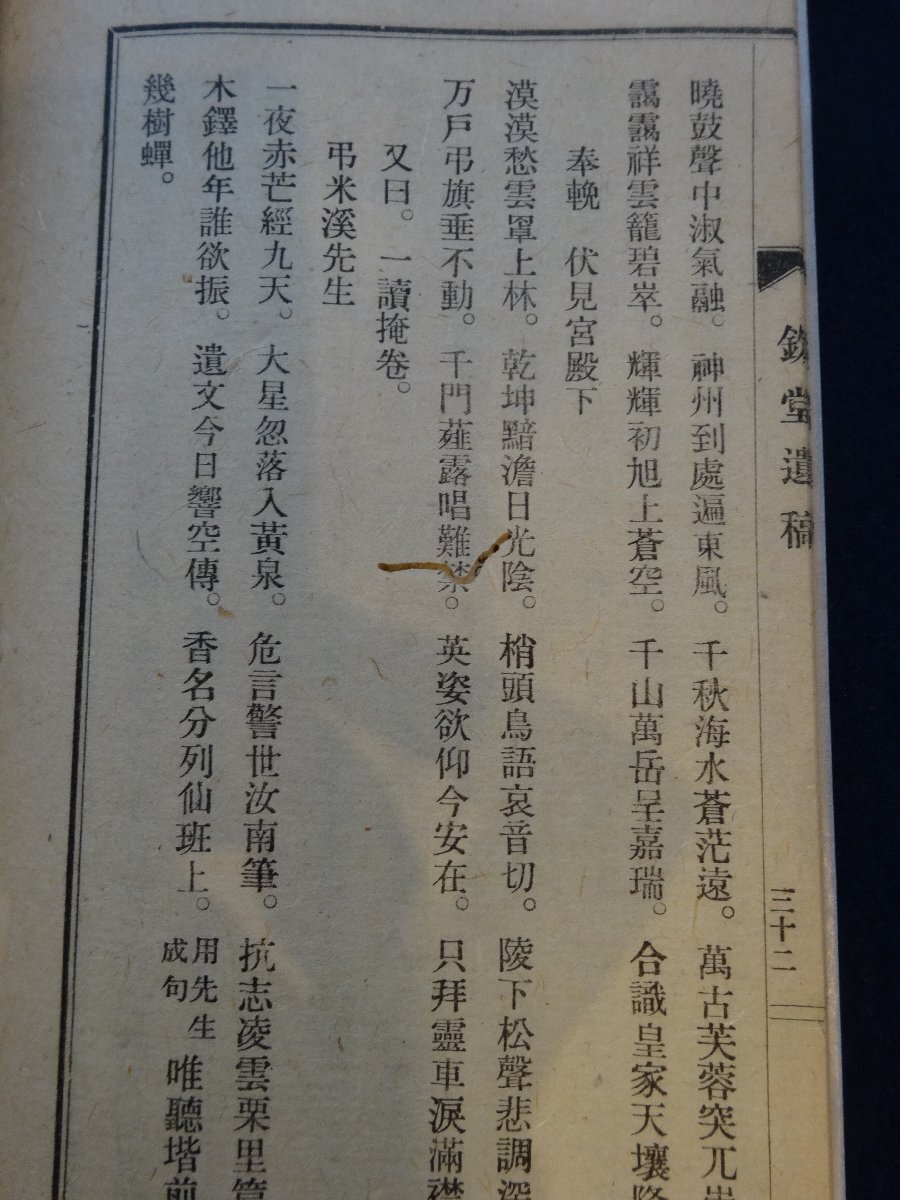 曉鼓聲中淑氣融。神州到處遍東風。千秋海水蒼茫遠。萬古芙蓉突兀
靄靄祥雲籠碧崒。輝輝初旭上蒼空。千山萬岳呈嘉瑞。合識皇家天壤隆
奉輓　伏見宮殿下
漠漠愁雲罩上林。乾坤黯澹日光陰。梢頭鳥語哀音切。陵下松聲悲調深
万戶弔旗垂不動。千門薤露唱難禁。英姿欲仰今安在。只拜靈車淚滿襟
又曰。一讀掩卷。
弔米溪先生
一夜赤芒經九天。大星忽落入黃泉。危言警世汝南筆。抗志凌雲栗里
木鐸他年誰欲振。遺文今日響空傳。香名分列仙班上。用先生成句 唯聽堦前
幾樹蟬。
堂遺稿
三十二